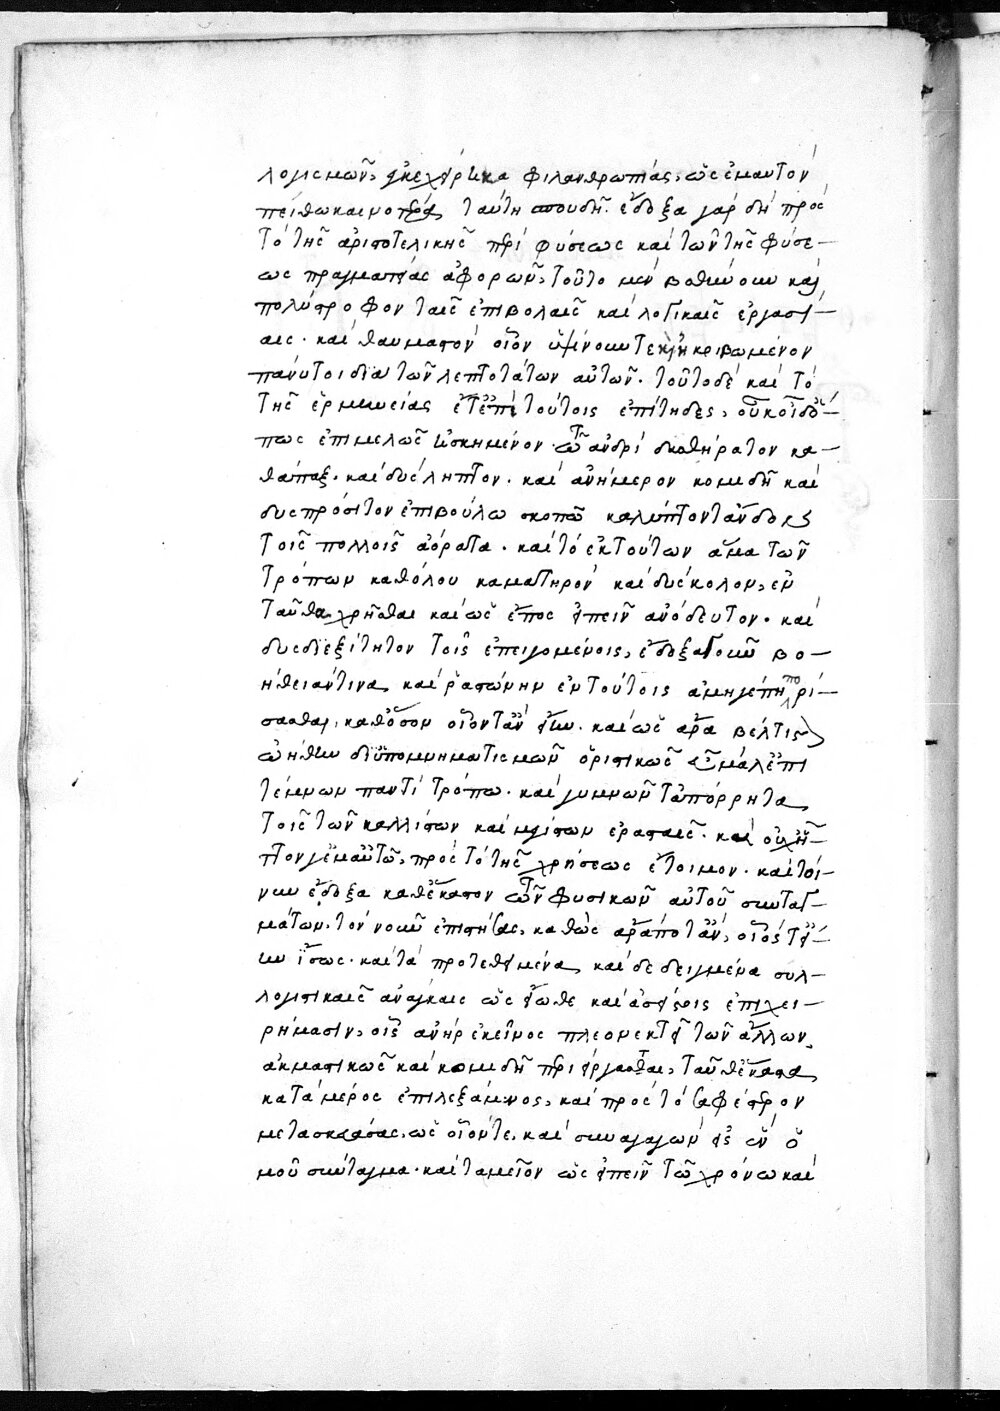 λογισμῶν, ἐκεχρήμην φιλανθρωπίας, ὡς ἐμαυτὸν
πείθω καινοτέρᾳ ταύτῃ σπουδῇ. ἔδοξα γὰρ δὴ πρὸς
τὸ τῆς ἀριστοτελικῆς περὶ φύσεως καὶ τῶν τῆς φύσε-
ως πραγματείας ἀφορῶν, τοῦτο μὲν βαθύνουν καὶ
πολύστροφον ταῖς ἐπιβολαῖς καὶ λογικαῖς ἐργασί-
αις. καὶ θαυμαστὸν οἷον ὑψίνουν τε καὶ ἠκριβωμένον
πάνυ τοι διὰ τῶν λεπτοτάτων αὐτῶν. τοῦτο δὲ καὶ τὸ
τῆς ἑρμηνείας ἔτ' ἐπὶ τούτοις ἐπίτηδες, οὐκ οἶδ' ὅ-
πως ἐπιμελῶς ἠσκημένον τῷ ἀνδρὶ δυσθήρατον κα-
θάπαξ. καὶ δύσληπτον. καὶ ἀνήμερον κομιδῇ καὶ
δυσπρόσιτον ἐπιβούλῳ σκοπῷ καλύπτοντ' ἄνδρες
τοῖς πολλοῖς ἀόρατα. καὶ τὸ ἐκ τούτων ἅμα τῶν
τρόπων καθόλου καματηρὸν καὶ δύσκολον, ἐν
ταῦθα χρῆσθαι καὶ ὡς ἔπος εἰπεῖν ἀνόδευτον. καὶ
δυσδιεξίτητον τοῖς ἐπειγομένοις, ἔδοξα γοῦν βο-
ήθειάν τινα καὶ ῥᾳστώνην ἐν τούτοις ἀμηγέπη πορί-
σασθαι, καθόσον οἷόν τ' ἂν εἴη. καὶ ὡς ἄρα βέλτιστον
ᾠήθην δι' ὑπομνηματισμῶν ὁριστικῶς μάλ' ἐπι
τέμνων παντὶ τρόπῳ. καὶ γυμνῶν τἀπόρρητα
τοῖς τῶν καλλίστων καὶ μεγίστων ἐρασταῖς. καὶ οὐχ ἧτ-
τον γ' ἐμαυτῷ, πρὸς τὸ τῆς χρήσεως ἕτοιμον. καὶ τοί-
νυν ἔδοξα καθ' ἕκαστον τῶν φυσικῶν αὐτοῦ συνταγ-
μάτων, τὸν νοῦν ἐπιστήσας, καθὼς ἄρά ποτ' ἂν, οἷός τ' εἴ-
ην ἴσως. καὶ τὰ προτεθειμένα καὶ δεδειγμένα συλ-
λογιστικαῖς ἀνάγκαις ὡς εἴωθε καὶ ἀστείροις ἐπιχει-
ρήμασιν, οἷς ἀνὴρ ἐκεῖνος πλεονεκτεῖ τῶν ἄλλων,
ἀκμαστικῶς καὶ κομιδῇ περιείργασται, ταῦθ' ἕκαστα
κατὰ μέρος ἐπιλεξάμενος, καὶ πρὸς τὸ σαφέστερον
μετασκευάσας, ὡς οἷόν τε, καὶ συναγαγὼν εἰς ἓν ὁ
μοῦ σύνταγμα. καὶ ταμεῖον ὡς εἰπεῖν τῷ χρόνῳ καὶ